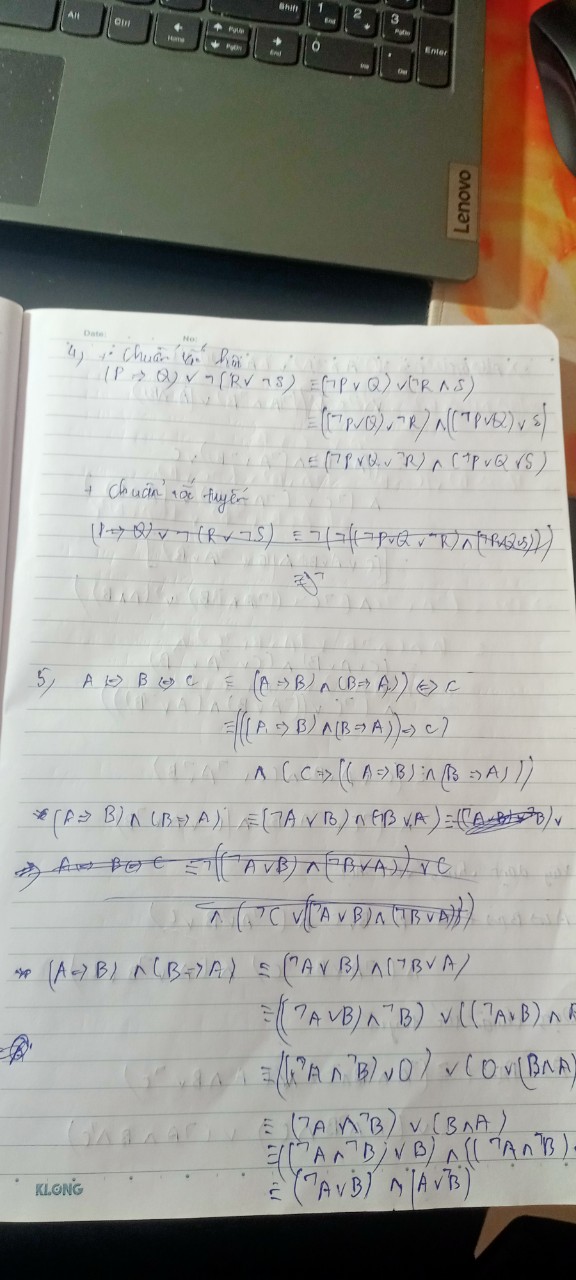 Shift
Alt
Ctrl
Home
PgUp
PgDn
End
1
End
2
3
PgDn
0
Ins
.
Del
Enter
Lenovo
Date:
No:
4) + chuẩn tắc hội
(P → Q) ∨ ¬(R ∨ ¬S) ≡ (¬P ∨ Q) ∨ (¬R ∧ S)
≡ ((¬P∨Q) ∨ ¬R) ∧ ((¬P∨Q) ∨ S)
≡ (¬P∨Q ∨ ¬R) ∧ (¬P∨Q ∨S)
+ chuẩn tắc tuyển
(P → Q) ∨ ¬(R ∨ ¬S) ≡ ¬(¬((¬P∨Q ∨ ¬R) ∧ (¬P∨Q∨S)))
≡
5) A ⇔ B ⇔ C ≡ (A ⇒ B) ∧ (B ⇒ A)) ⇔ C
≡ (((A ⇒ B) ∧ (B ⇒ A)) ⇒ C)
∧ ( C ⇒ ((A ⇒ B) ∧ (B ⇒ A)))
* (A ⇒ B) ∧ (B ⇒ A) ≡ (¬A ∨ B) ∧ (¬B ∨ A) ≡ ∨
⇒ A ⇔ B ⇔ C ≡ ¬((¬A ∨ B) ∧ (¬B ∨ A)) ∨ C
∧ (¬C ∨ ((¬A ∨ B) ∧ (¬B ∨ A)))
* (A ⇒ B) ∧ (B ⇒ A) ≡ (¬A ∨ B) ∧ (¬B ∨ A)
≡ ((¬A ∨ B) ∧ ¬B) ∨ ((¬A ∨ B) ∧
≡ ((¬A ∧ ¬B) ∨ 0) ∨ (0 ∨ (B ∧ A)
≡ (¬A ∧ ¬B) ∨ (B ∧ A)
≡ ((¬A ∧ ¬B) ∨ B) ∧ ((¬A ∧ ¬B)
≡ (¬A ∨ B) ∧ (A ∨ ¬B)
KLONG